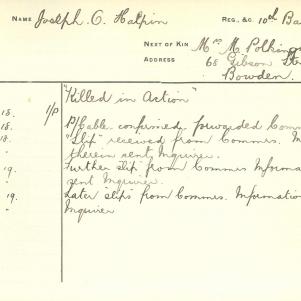 NAME Joseph O. Halpin REG., &C. 10th Ba
NEXT OF KIN Mrs M. Polking
ADDRESS 68 Gibson St
Bowden.
"Killed in Action"
18. 1/P P/Cable confirmed forwarded Comm
18. "Slip" received from Commrs.
therein sent Inquirer.
19. Further "slip" from Commrs Informa
sent Inquirer.
19. Later "slips" from Commrs. Information
Inquirer